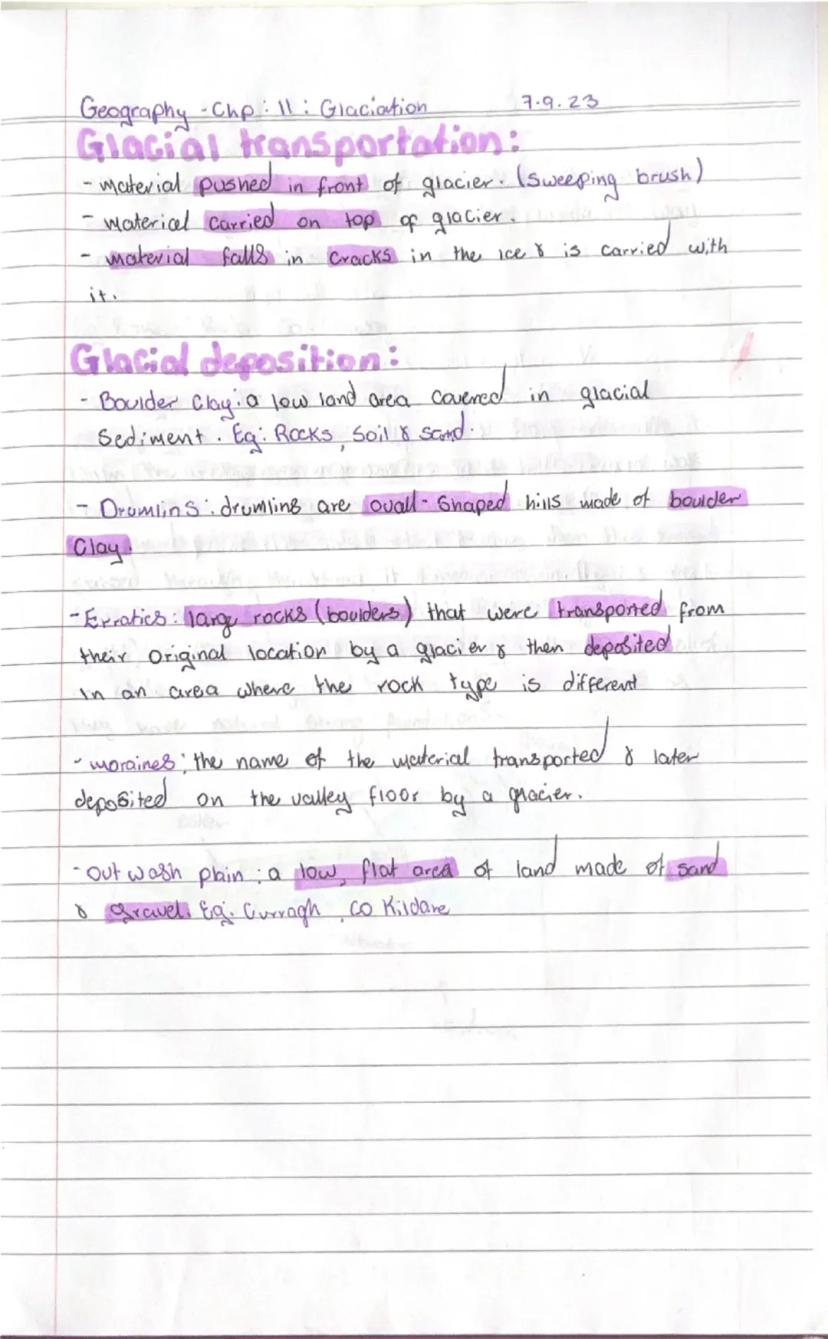 Geography - Chp : 11 : Glaciation 7.9.23
Glacial transportation:
- Material pushed in front of glacier. (Sweeping brush)
- Material carried on top of glacier.
- Material falls in cracks in the ice & is carried with
it.
Glacial deposition:
- Boulder Clay: a low land area covered in glacial
Sediment. Eg: Rocks, Soil & Sand.
- Drumlins: drumlins are ovall-shaped hills made of boulder
Clay.
- Erratics: large rocks (boulders) that were transported from
their original location by a glacier & then deposited
in an area where the rock type is different
- moraines; the name of the material transported & later
deposited on the valley floor by a glacier.
- Out wash plain: a low, flat area of land made of sand
& gravel. Eg. Curragh, CO Kildare